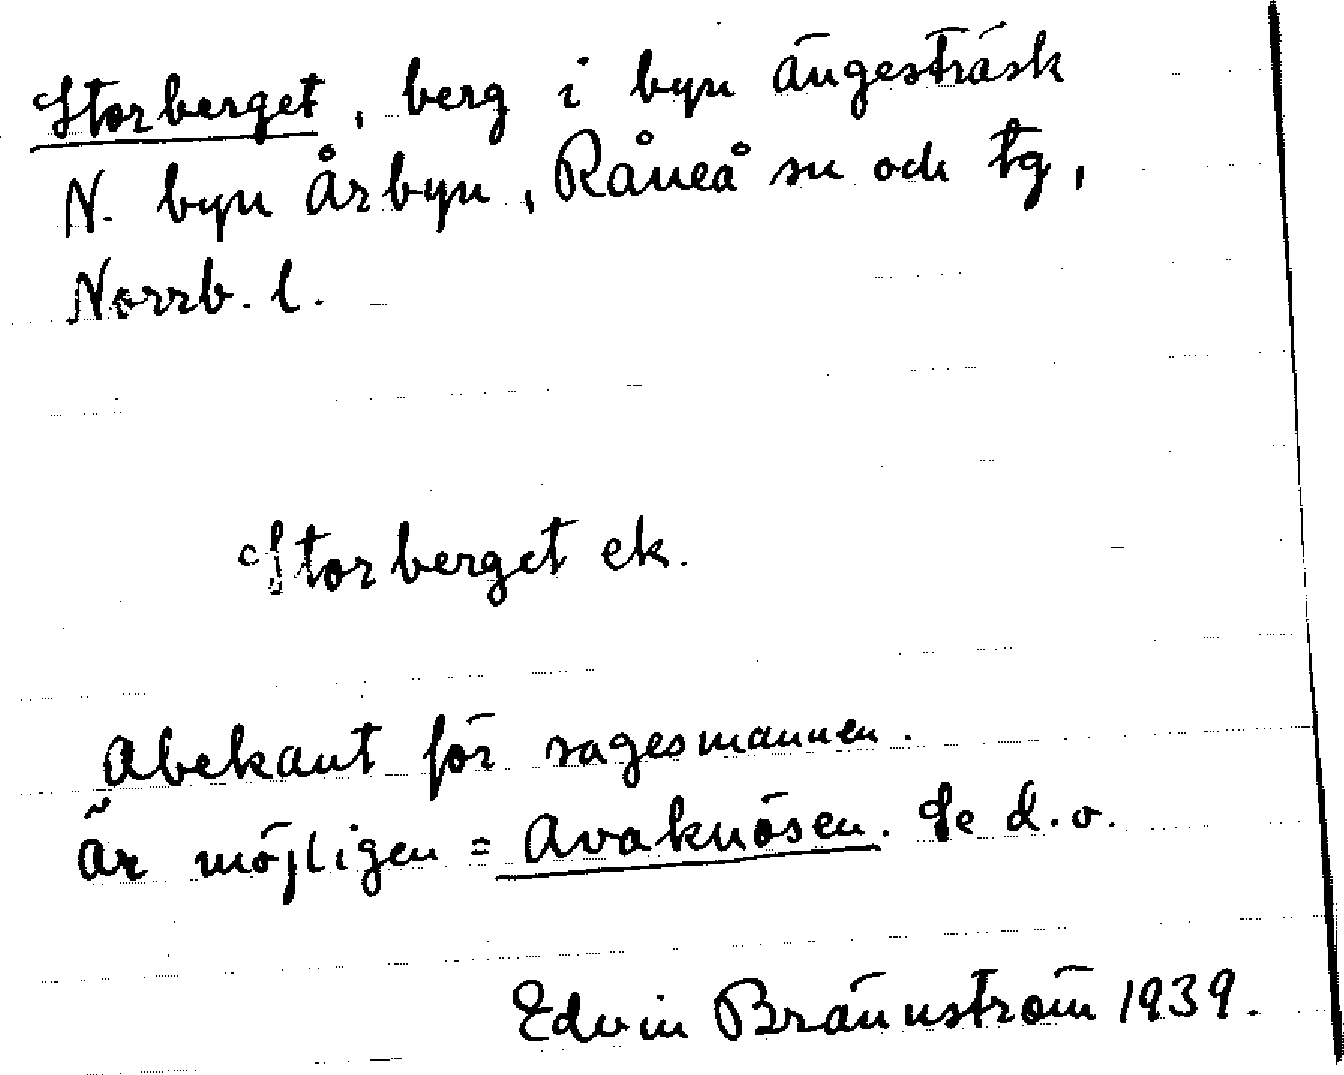 Storberget, berg i byn Ängesträsk
N. byn Årbyn, Råneå sn och tg,
Norrb. l.
Storberget ek.
Obekant för sagesmannen.
Är möjligen = Avaknösen. Se d. o.
Edvin Brännström 1939.